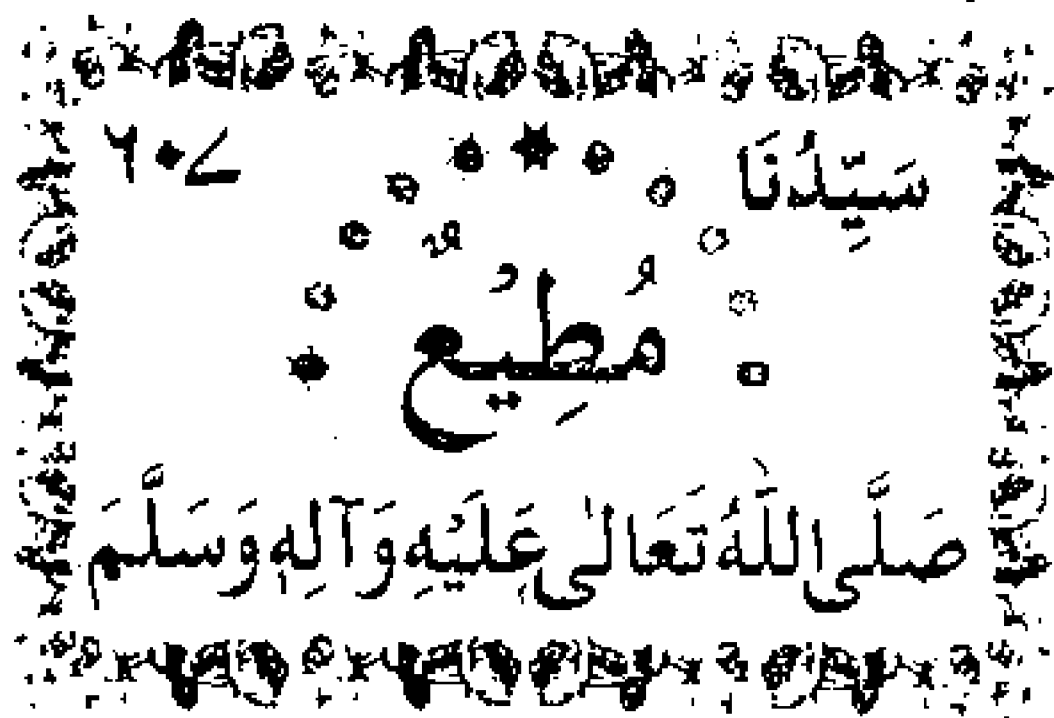 سَيِّدُنَا
مُطِيْعٌ
صَلَّى اللّٰهُ تَعَالٰى عَلَيْهِ وَآلِهٖ وَسَلَّمَ